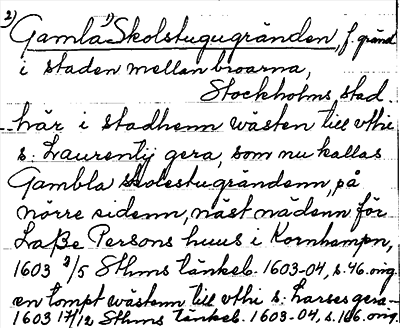 2) Gamla 1) Skolstugugränden, f. gränd
i staden mellan broarna,
Stockholms stad.
här i stadhenn wästen till vthi
s: Laurentij gera, som nu kallas
Gambla skolestugrändenn, på
nörre sidenn, näst nädenn för
Laße Persons huus i Kornhampn,
1603 2/5 Sthms tänkeb. 1603-04, s. 46. orig.
en tompt wästenn till vthi s. harses gera—
1603 17/12 Sthms tänkeb. 1603-04, s. 166. orig.